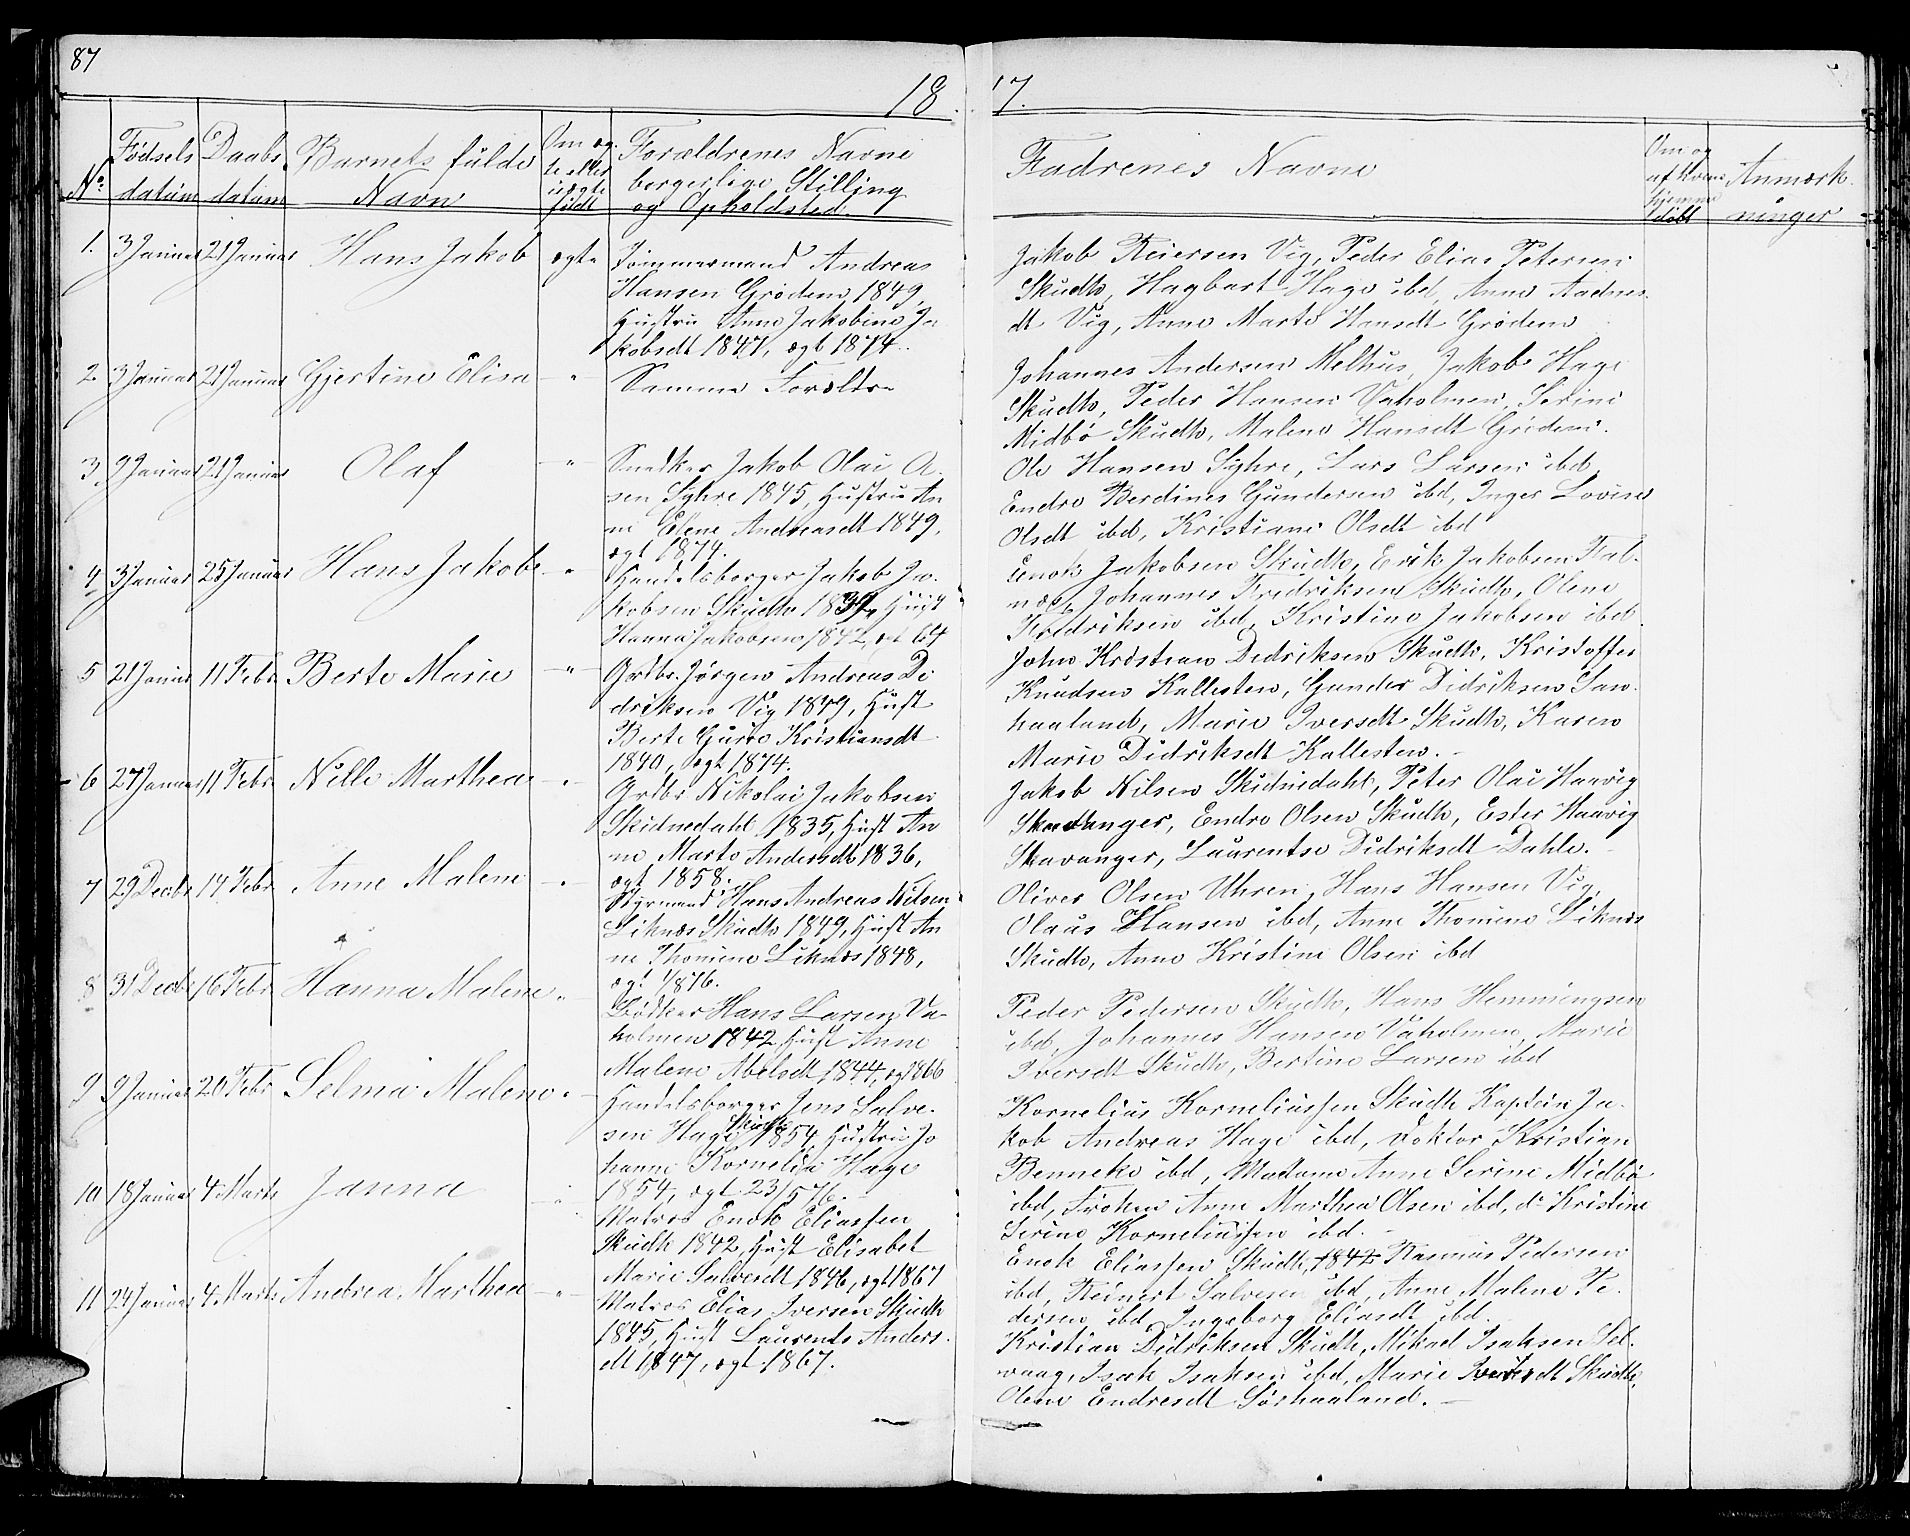 87
18 77.
No.
Fødsels
datum
Daabs
datum
Barnets fulde
Navn
Om æg-
te eller
uægte
født
Forældrenes Navne
borgerlige Stilling
og Opholdsted.
Fadrenes Navne
Om og
af hvem
hjemme
døbt
Anmærk-
ninger
1. 3 Januar 21 Januar Hans Jakob ægte
Tømmermand Andreas
Hansen Grødem 1849,
Hustru Anne Jakobine Ja-
kobsdt 1847, ægt 1874.
Jakob Reiersen Vig, Peder Elias Petersen
Skudth, Hagbart Hage ibd, Anne Aadnes-
dt Vig, Anne Marte Hansdt Grødem
2 3 Januar 21 Januar Gjertine Elisa - " -
Samme Forældre
Johannes Andersen Melhus, Jakob Hage
Skudth, Peder Hansen Vaholmen, Serine
Midbø Skudth, Malene Hansdt Grødem.
3 9 Januar 21 Januar Olaf - " -
Snedker Jakob Olai O-
sen Syhre 1845, Hustru An
ne Elene Andreasdt 1849,
ægt 1874.
Ole Hansen Syhre, Lars Larsen ibd,
Endre Berdines Gundersen ibd, Inger Lovise
Olsdt ibd, Kristiane Olsdt ibd
4 3 Januar 25 Januar Hans Jakob - " -
Handelsborger Jakob Ja-
kobsen Skudth 1839, Hust
Hanna Jakobsen 1842, ægt 64
Enok Jakobsen Skudth, Erik Jakobsen Fal-
næs, Johannes Fredriksen Skudth, Olene
Fredriksen ibd, Kristine Jakobsen ibd
5 21 Januar 11 Febr Berte Marie - " -
Grdbr. Jørgen Andreas Di
driksen Vig 1849, Hust
Berte Guro Kristiansdt
1840, ægt 1874.
John Kristian Didriksen Skudth, Kristoffer
Knudsen Kallesten, Gunder Didriksen San-
haaland, Marie Iversdt Skudth, Karen
Marie Didriksdt Kallesten. -
- 6 27 Januar 11 Febr Nille Marthea - " -
Grdbr Nikolai Jakobsen
Skidnedahl 1835, Hust An
ne Marte Andersdt 1836,
ægt 1858.
Jakob Nilsen Skidnedahl, Peter Olai Haavig
Skavanger, Endre Olsen Skudth, Ester Haavig
Skavanger, Laurentse Didriksdt Dahle. -
7 29 Decbr 14 Febr Anne Malene - " -
Styrmand Hans Andreas Nilsen
Liknæs Skudth 1849, Hust An
ne Thomine Liknæs 1848,
ægt 1876.
Oliver Olsen Uhren, Hans Hansen Vig,
Olaus Hansen ibd, Anne Thomine Liknæs
Skudth, Anne Kristine Olsen ibd
8 31 Decbr 16 Febr Hanna Malene - " -
Bødker Hans Larsen Va-
holmen 1842, Hust Anne
Malene Abelsdt 1844, ægt 1866
Peder Pedersen Skudth, Hans Hemmingsen
ibd, Johannes Hansen Vaholmen, Marie
Iversdt Skudth, Bertine Larsen ibd
9 9 Januar 20 Febr Selma Malene - " -
Handelsborger Jens Salve-
sen Hage Skudth 1854, Hustru Jo
hanne Kornelia Hage
1854, ægt 23/5 76.
Kornelius Korneliussen Skudth Kaptein Ja-
kob Andreas Hage ibd, Doktor Kristian
Benneke ibd, Madame Anne Serine Midbø
ibd, Frøken Anne Marthea Olsen ibd, do Kristine
Serine Korneliussen ibd. -
10 18 Januar 4 Marts Janna - " -
Matros Enok Eliassen
Skudth 1842, Hust Elisabet
Marie Salvesdt 1846, ægt 1867
Enok Eliassen Skudth, 1842 Rasmus Pedersen
ibd, Reinert Salvesen ibd, Anne Malene Pe-
dersen ibd, Ingeborg Eliasdt ibd.
11 24 Januar 4 Marts Andrea Marthea - " -
Matros Elias Iversen Skudth
1845, Hust Laurents Anders-
dt 1847, ægt 1867.
Kristian Didriksen Skudth, Mikael Isaksen Sel-
vaag, Isak Isaksen ibd, Marie Iversdt Skudth,
Olene Endresdt Sørhaaland. -